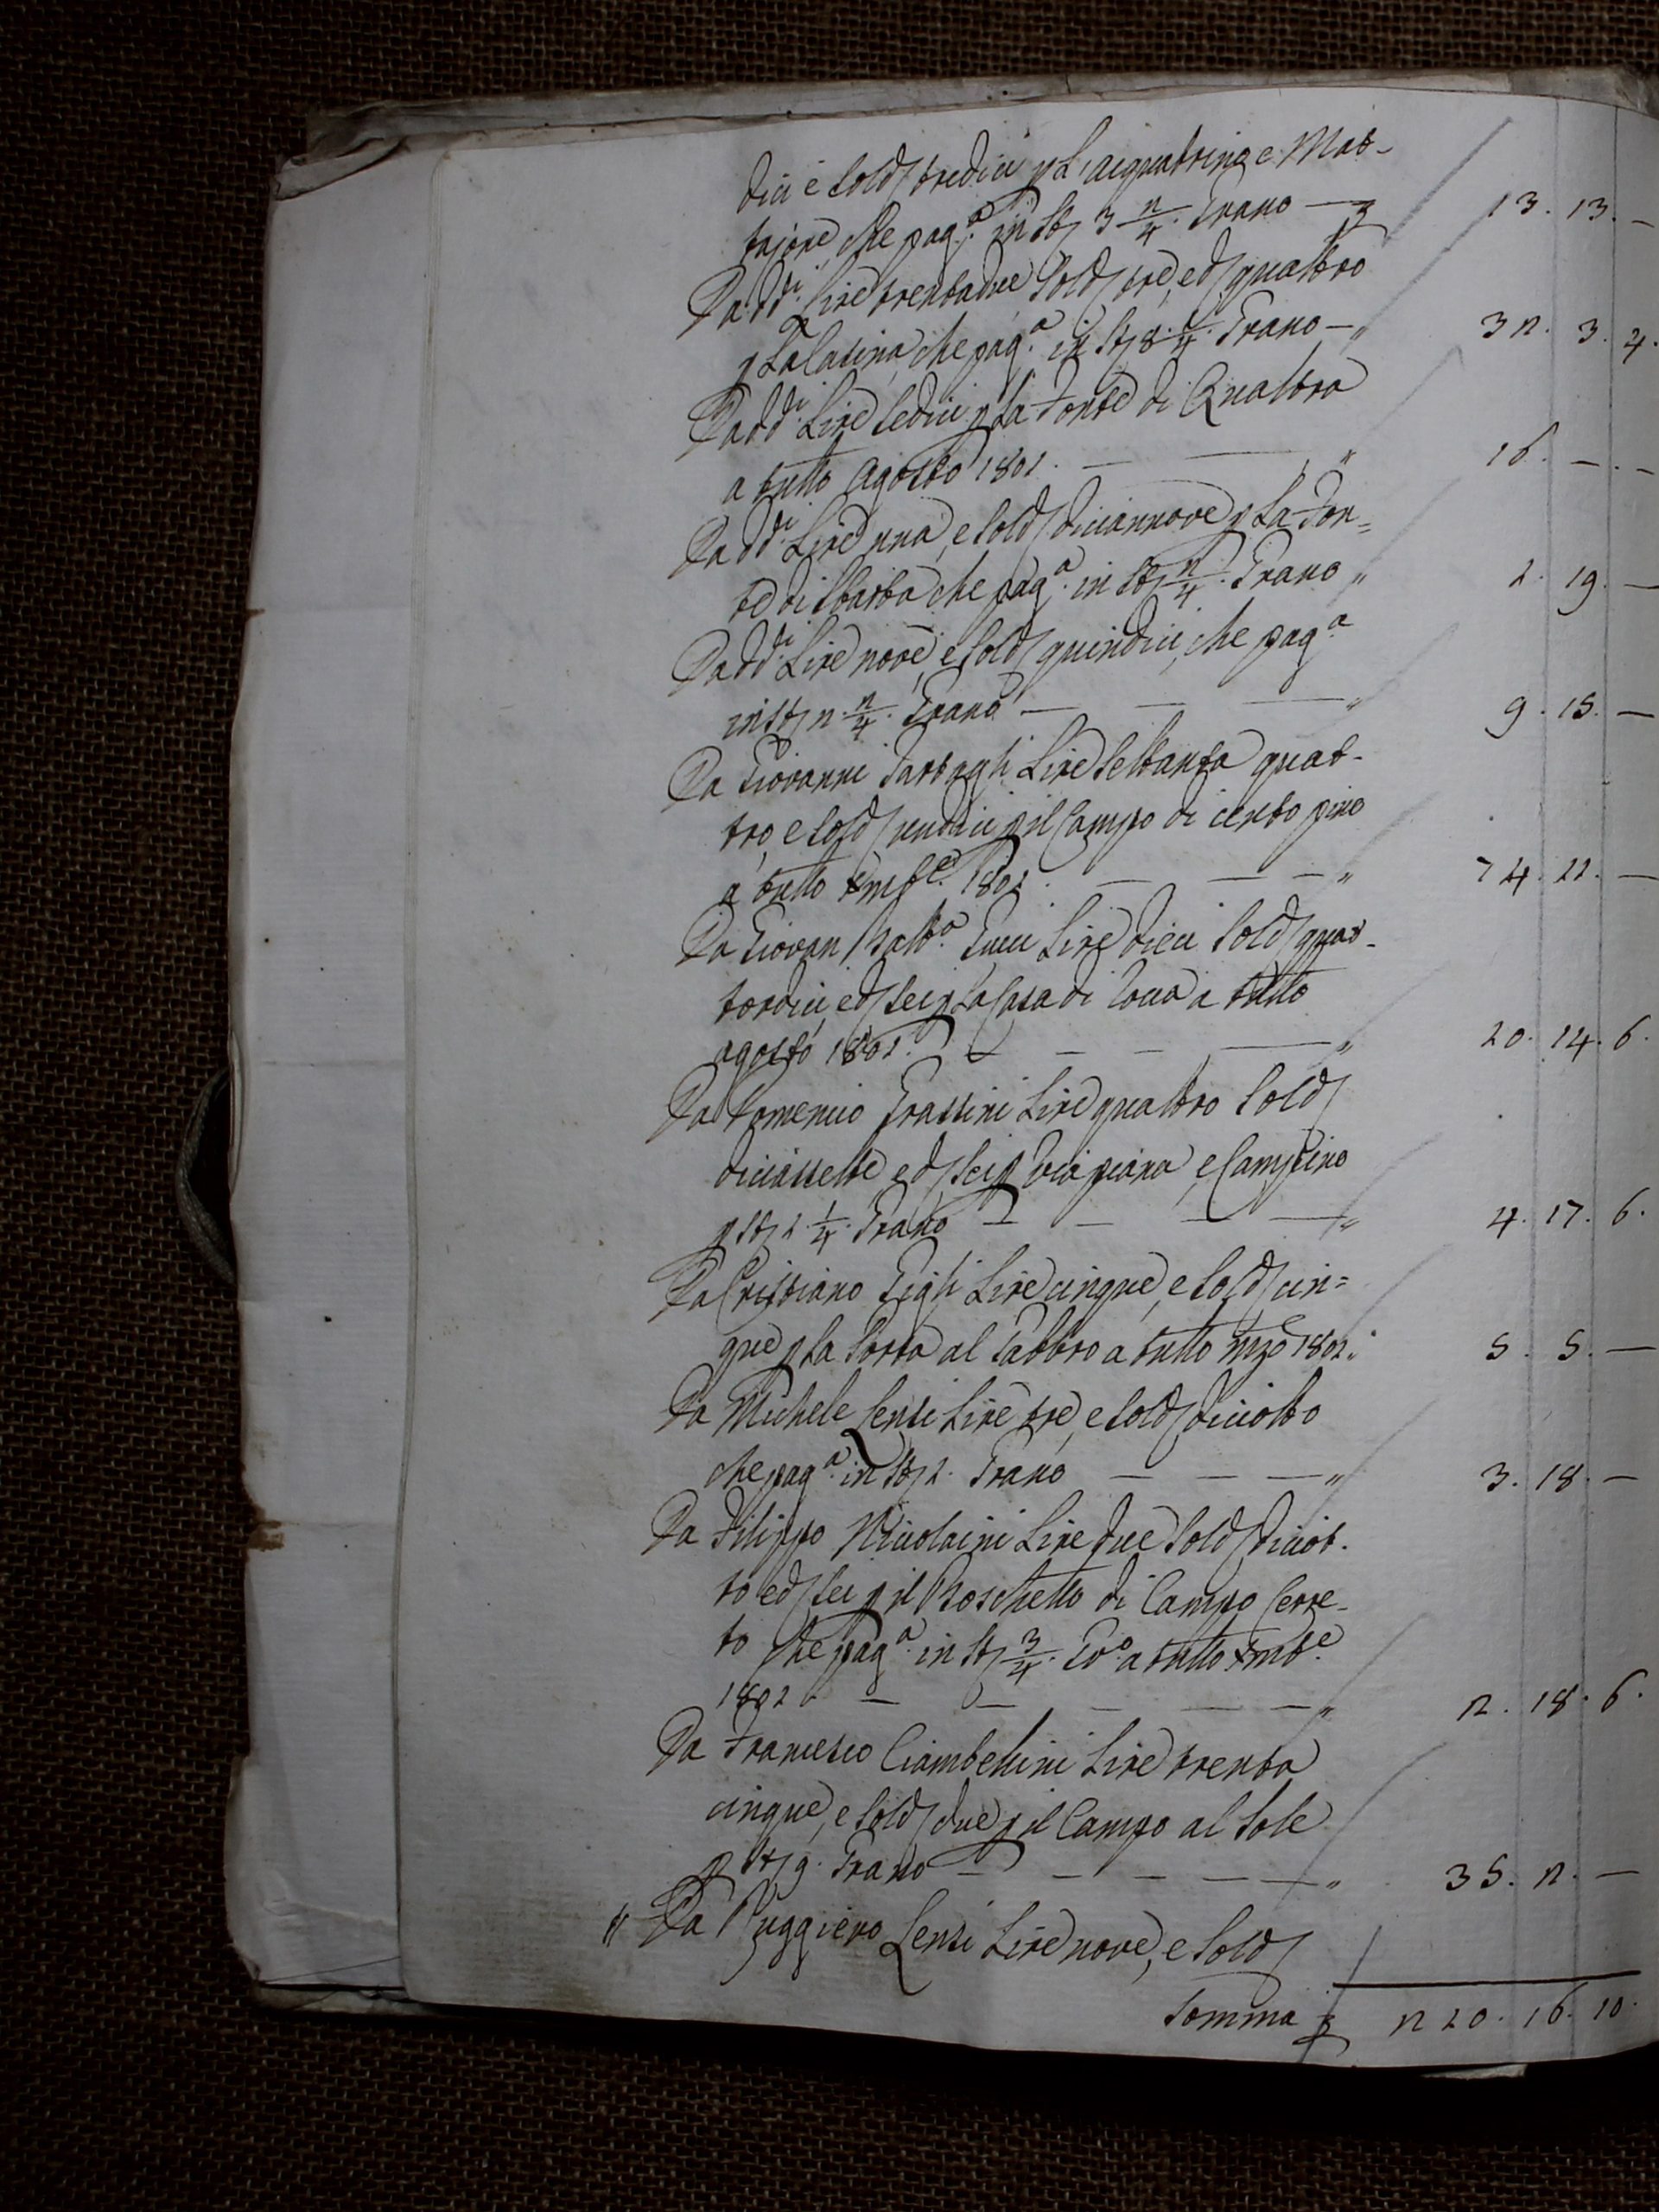 dici e sold tredici p L'acquatrina e Mat-
tajone che pag.a in st 3 2/4. Grano — £ 13. 13. —
Da dd.i Lire trentadue Sold tre, e d quattro
p La Casina che pag.a in st 8. 1/4. Grano — " 32. 3. 4.
Da dd.i Lire sedici p La Fonte di Quattro
a tutto Agosto 1801. — — " 16. — . —
Da dd.i Lire una, e sold diciannove p La Fon=
te di Sbarba che pag.a in st 2/4. Grano " 1. 19. —
Da dd.i Lire nove, e sold quindici, che pag.a
in st 2. 2/4. Grano — — — " 9. 15. —
Da Giovanni Lire Settanta quat-
tro, e sold undici p il Campo di cento pino
a tutto Xmb.e 1801. — — — " 74. 11. —
Da Giovan Batt.a Lire dieci Sold quat-
tordici, e d sei p La Casa di a tutto
agosto 1801. — — — — " 10. 14. 6.
Da Domenico Grassini Lire quattro Sold
diciassette e d sei p Via piana, e Campino
p st 1. 1/4. Grano — — — — " 4. 17. 6.
Da Cristiano Gigli Lire cinque, e sold cin=
que p La Porta al Fabbro a tutto mzo 1802. " 5. 5. —
Da Michele Censi Lire tre, e sold diciotto
che pag.a in st 1. Grano — — — " 3. 18. —
Da Filippo Nicolaini Lire due Sold diciot-
to e d sei p il Boschetto di Campo Cerre-
to che pag.a in st 3/4. Gr.o a tutto Xmb.e
1801 — — — — — " 2. 18. 6.
Da Francesco Ciambellini Lire trenta
cinque, e sold due p il Campo al Sole
p st 9. Grano — — — — — " 35. 2. —
" Da Ruggiero Censi Lire nove, e Sold
Somma £ 210. 16. 10.